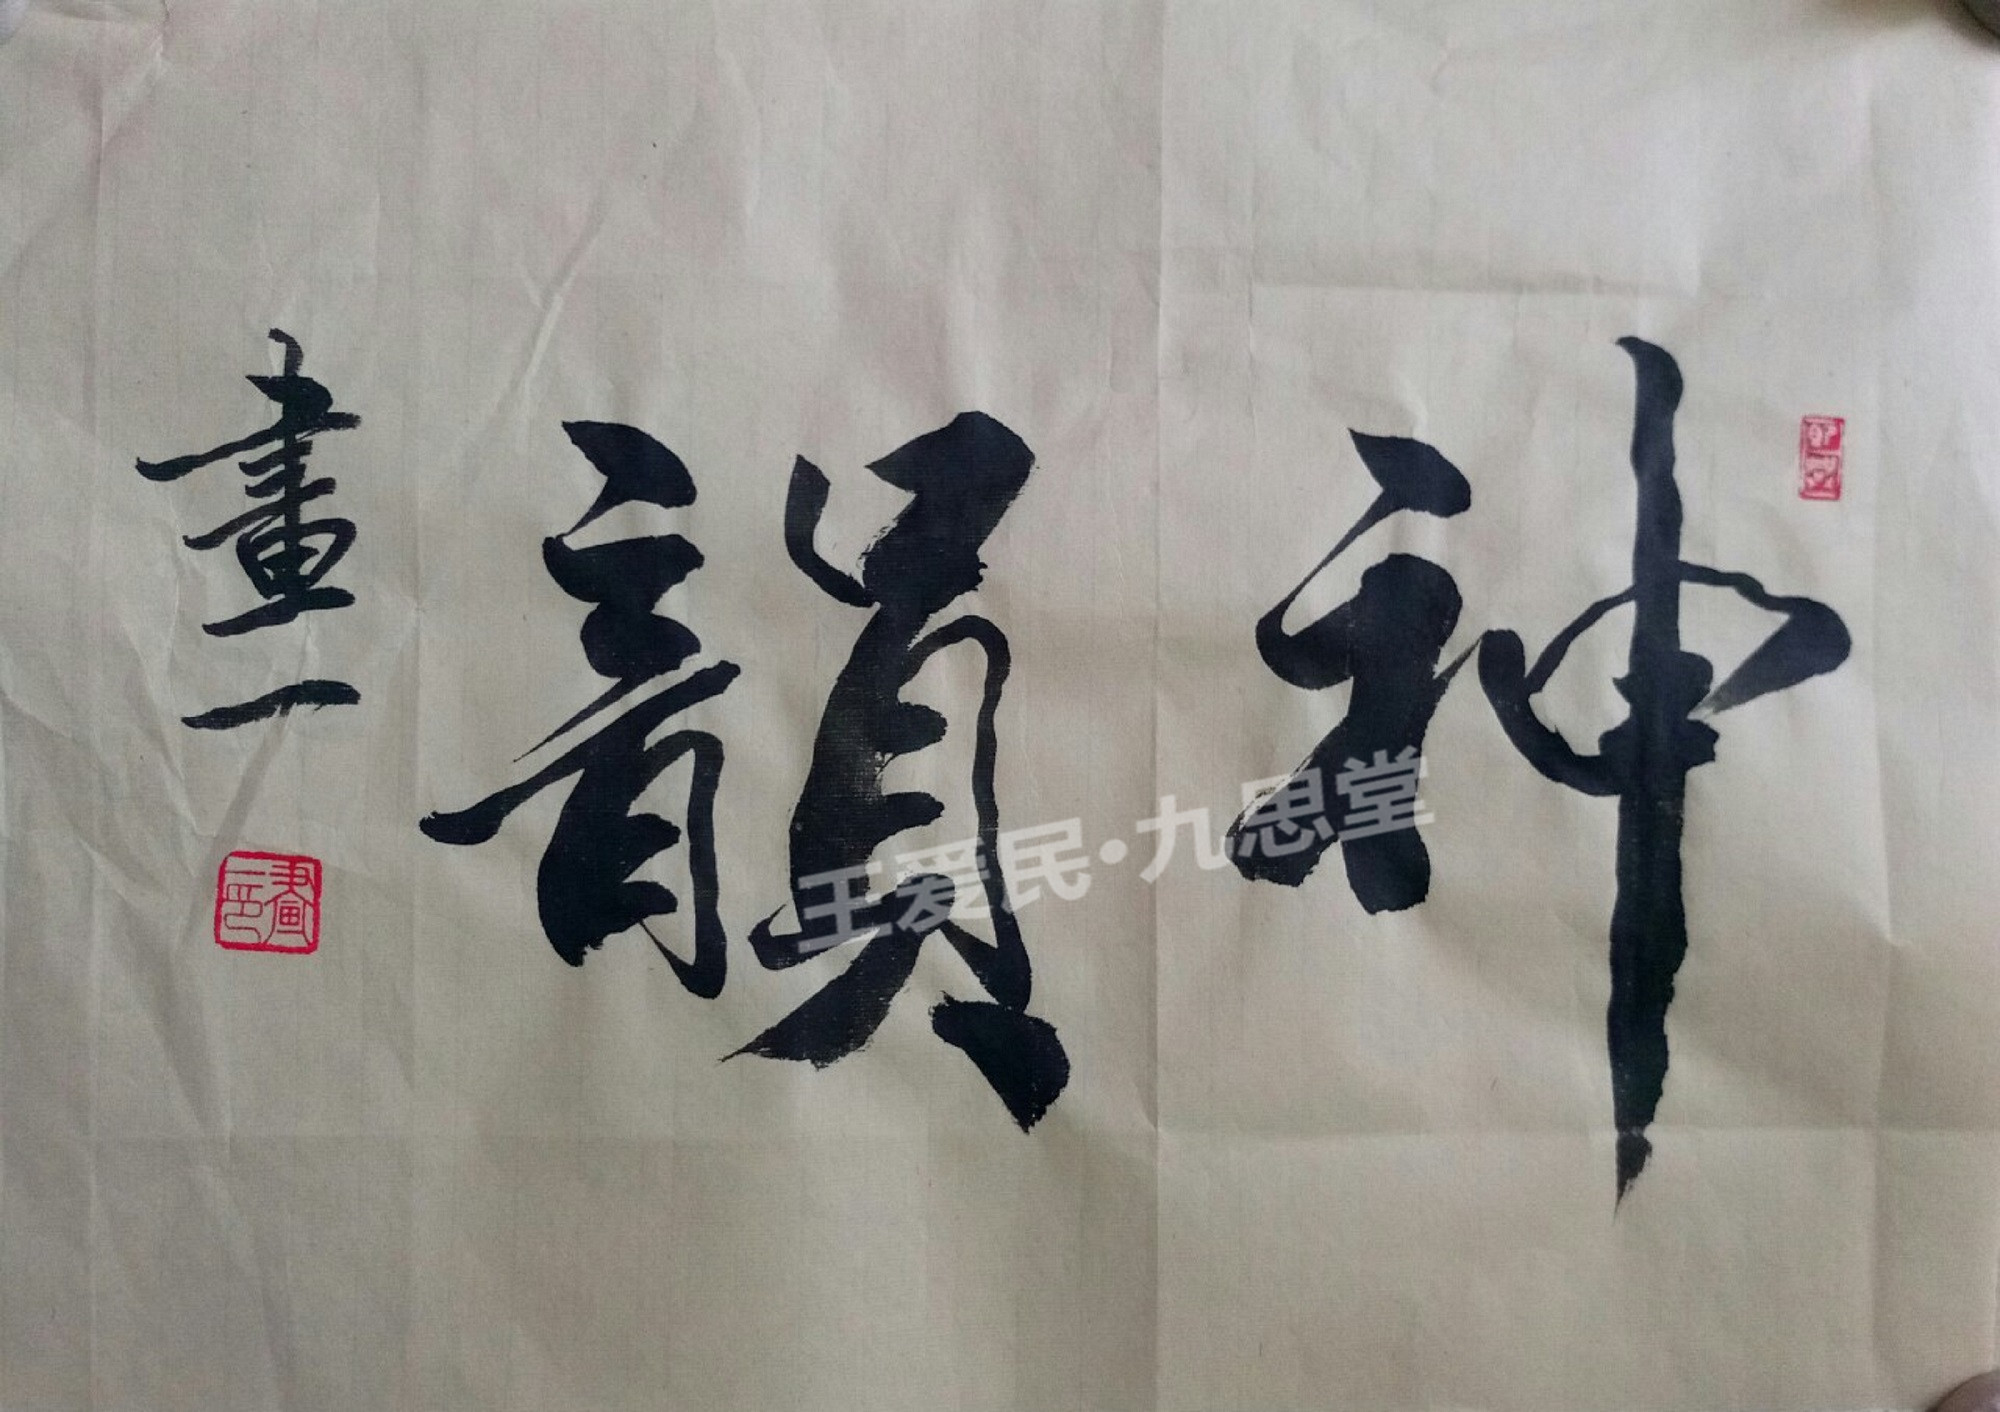 神韻
畫一
王爱民·九思堂